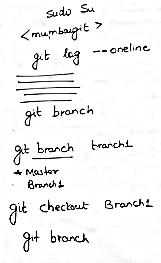 sudo su
<mumbaigit>
git log --oneline
git branch
git branch branch1
* Master
Branch1
git checkout Branch1
git branch